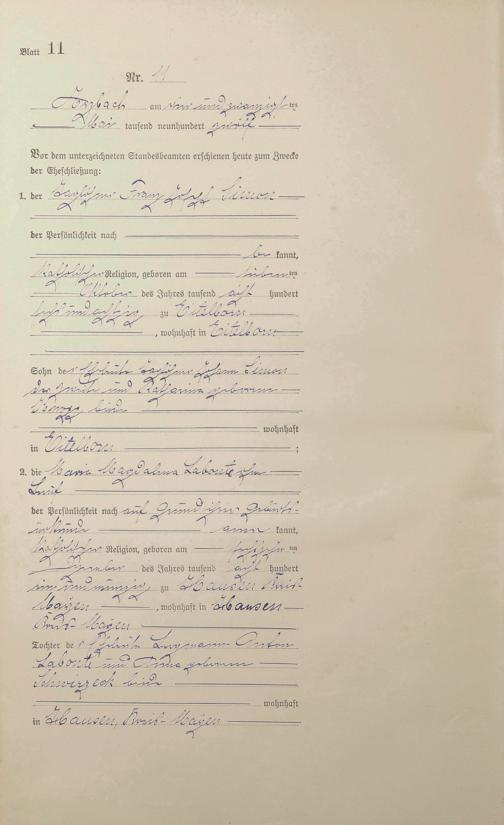 Blatt 11
Nr. 11
am ein und zwanzigsten
Mai tausend neunhundert zwölf
Vor dem unterzeichneten Standesbeamten erschienen heute zum Zwecke
der Eheschließung:
1. der Taglöhner Franz Josef Simon
der Persönlichkeit nach
be kannt,
katholischer Religion, geboren am siebenten
Oktober des Jahres tausend acht hundert
sechs und achtzig zu Eitelborn
, wohnhaft in Eitelborn
Sohn der Eheleute Taglöhner Johann Simon
der zweite und Katharina geborene
beide
wohnhaft
in Eitelborn ;
2. die Maria Magdalena Labonte ohne
Beruf
der Persönlichkeit nach auf Grund ihrer Geburts-
urkunde aner kannt,
katholischer Religion, geboren am ten
des Jahres tausend acht hundert
ein und neunzig zu Hausen Kreis-
Mayen , wohnhaft in Hausen
Kreis- Mayen
Tochter der Eheleute Bergmann Anton
Labonte und Anna geborene
beide
wohnhaft
in Hausen, Kreis- Mayen